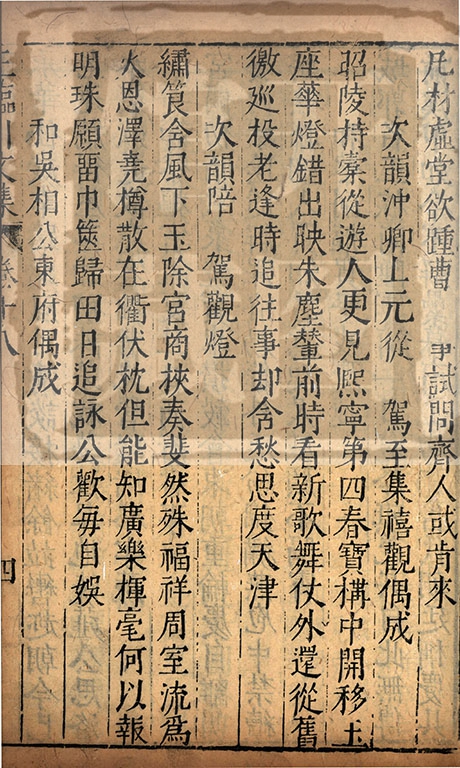 凡材虛堂欲踵曹 試問齊人或肯來
次韻沖卿上元從 駕至集禧觀偶成
昭陵持槖從遊人更見熙寧第四春寶構中開移玉
座華燈錯出映朱塵輦前時看新歌舞仗外還從舊
徼巡投老逢時追往事却含愁思度天津
次韻陪 駕觀燈
繡筤含風下玉除宮商挾奏斐然殊福祥周室流爲
火恩澤堯樽散在衢伏枕但能知廣樂揮毫何以報
明珠願畱巾篋歸田日追詠公歡每自娛
和吳相公東府偶成
王臨川文集 卷十八 四